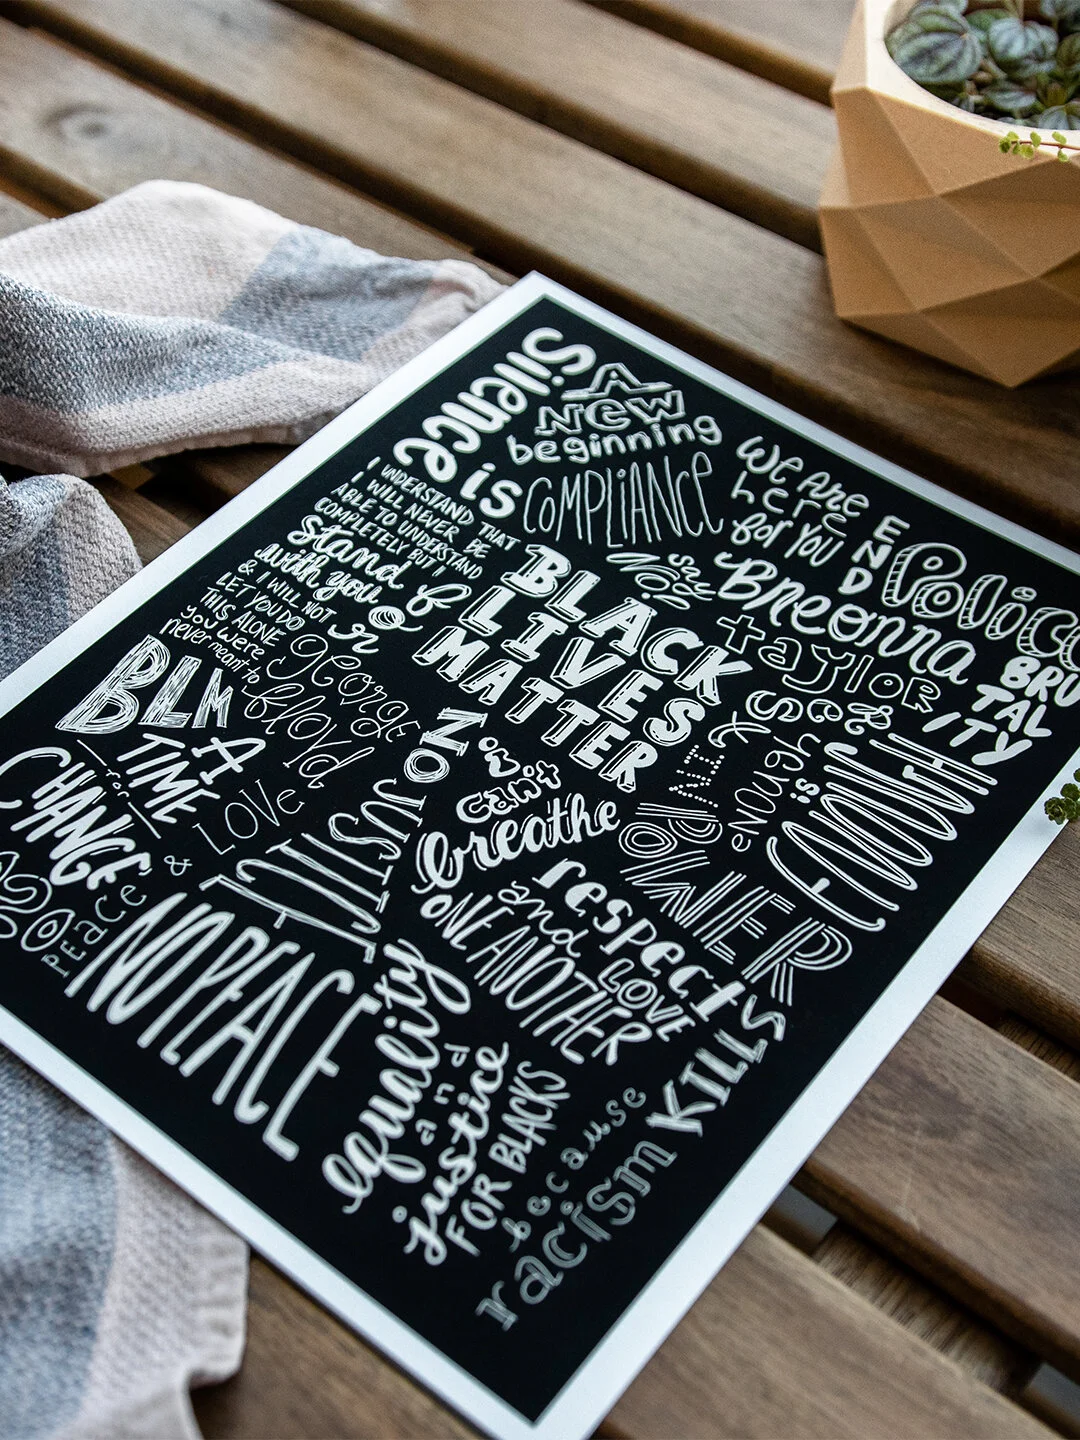 Silence
is
A
New
beginning
COMPLIANCE
We ARe
here
for YOU
END
Police
BRU
TAL
ITY
I UNDERSTAND THAT
I WILL NEVER BE
ABLE TO UNDERSTAND
COMPLETELY BUT I
stand
with you
& I WILL NOT
LET YOU DO
THIS ALONE
you were
never meant to
BLACK
LIVES
MATTER
say
Breonna
taylor
George
floyd
BLM
A
TIME
for
CHANGE
LOVE
&
Peace
NO
JUSTICE
NO PEACE
can't
breathe
enough
is
ENOUGH
POWER
respect
and LOVE
ONE ANOTHER
equality
and
justice
FOR BLACKS
because
racism
KILLS